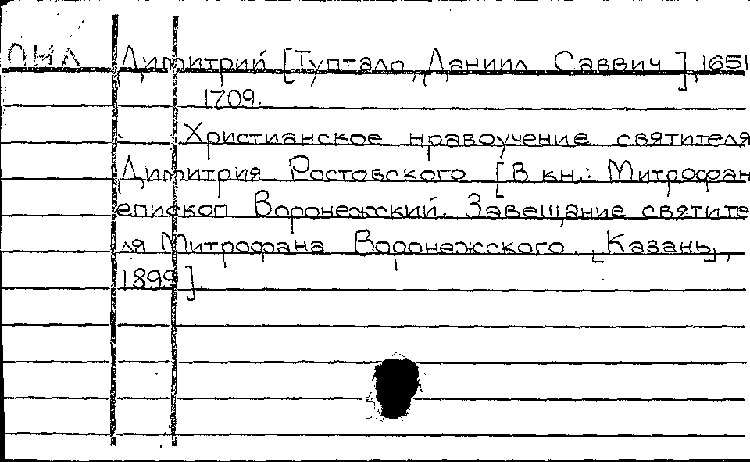 ОНЛ Димитрий [Туптало, Даниил Саввич], 1651
1709.
Христианское нравоучение святителя
Димитрия Ростовского [В кн.: Митрофан
епископ Воронежский. Завещание святите
ля Митрофана Воронежского. [Казань,
1899]